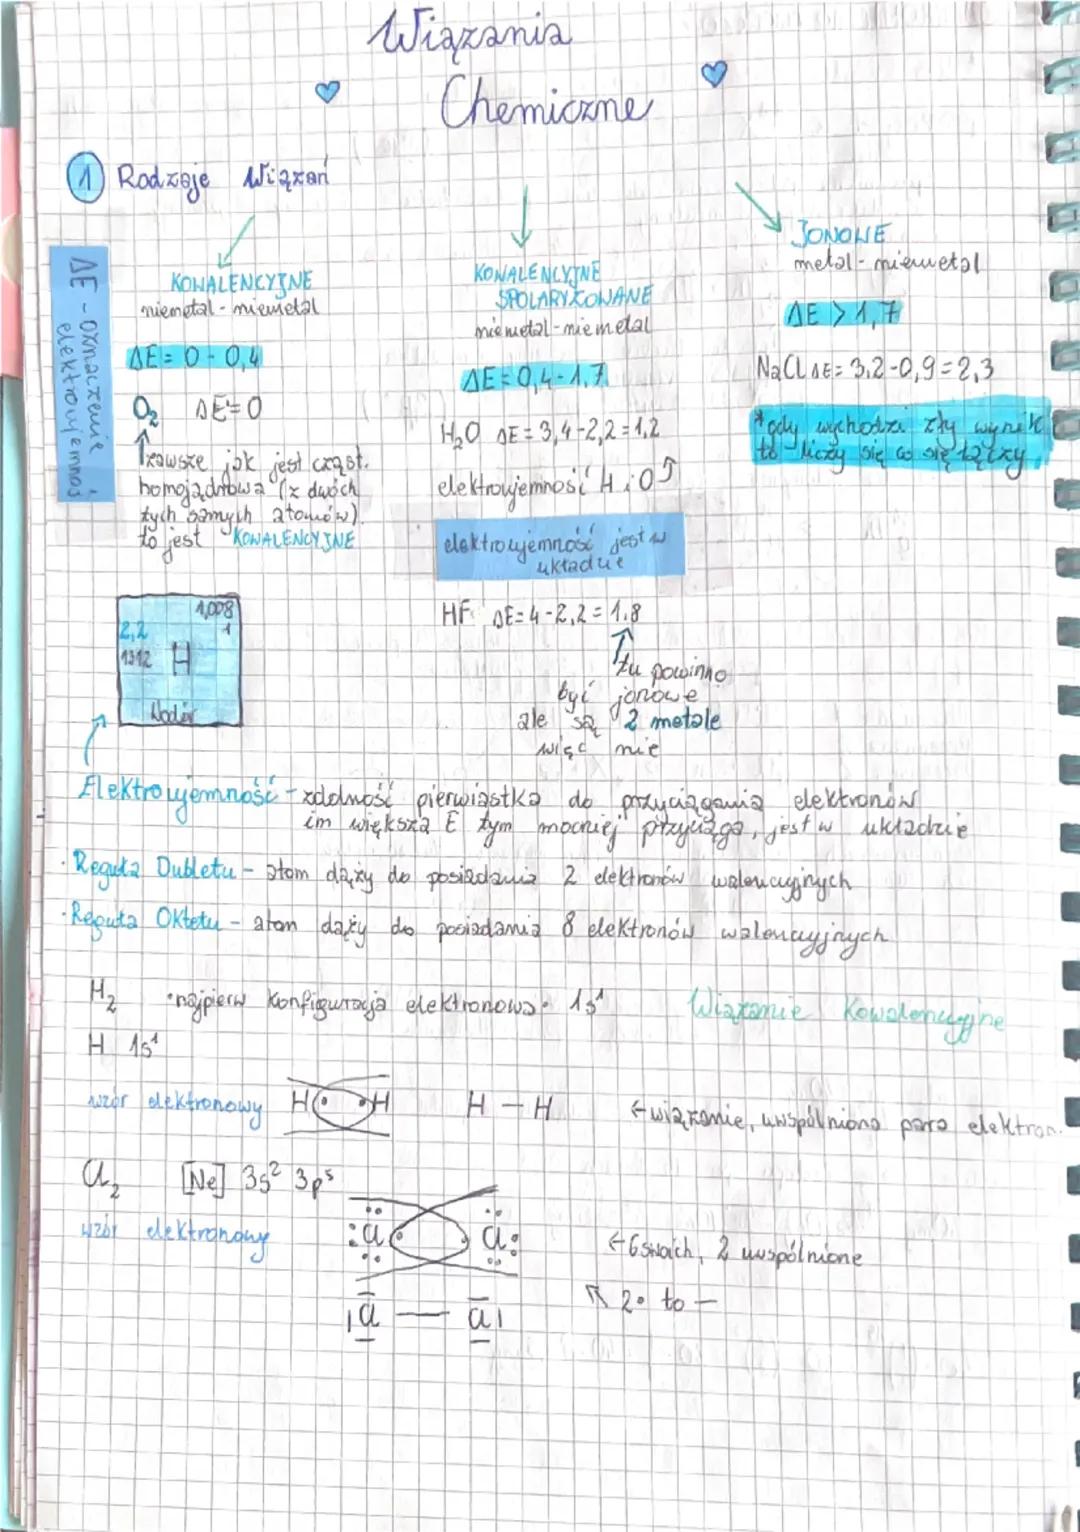 Wiązania
Chemiczne
1 Rodzaje Wiązań
ΔE - oznaczenie
elektroujemnoś
KOWALENCYJNE
niemetal - niemetal
ΔE = 0 - 0,4
O₂ ΔE = 0
zawsze jak jest cząst.
homojądrowa (z dwóch
tych samych atomów).
to jest KOWALENCYJNE
KOWALENCYJNE
SPOLARYZOWANE
niemetal - niemetal
ΔE = 0,4 - 1,7
H₂O ΔE = 3,4 - 2,2 = 1,2
elektroujemność H i O
elektroujemność jest w
układzie
HF ΔE = 4 - 2,2 = 1,8
tu powinno
być jonowe
ale są 2 metale
więc nie
JONOWE
metal - niemetal
ΔE > 1,7
NaCl ΔE = 3,2 - 0,9 = 2,3
*gdy wychodzi zły wynik
to liczy się co się łączy
1,008
2,2 1
1312 H
Wodór
Elektroujemność - zdolność pierwiastka do przyciągania elektronów
im większa E tym mocniej przyciąga, jest w układzie
· Reguła Dubletu - atom dąży do posiadania 2 elektronów walencyjnych
· Reguła Oktetu - atom dąży do posiadania 8 elektronów walencyjnych
H₂ · najpierw konfiguracja elektronowa · 1s¹ Wiązanie Kowalencyjne
H 1s¹
wzór elektronowy H · · H H - H ← wiązanie, uwspólniona para elektron.
Cl₂ [Ne] 3s² 3p⁵
wzór elektronowy :Cl · · Cl: ← 6 swoich, 2 uwspólnione
↖ 2• to —
|Cl — Cl|